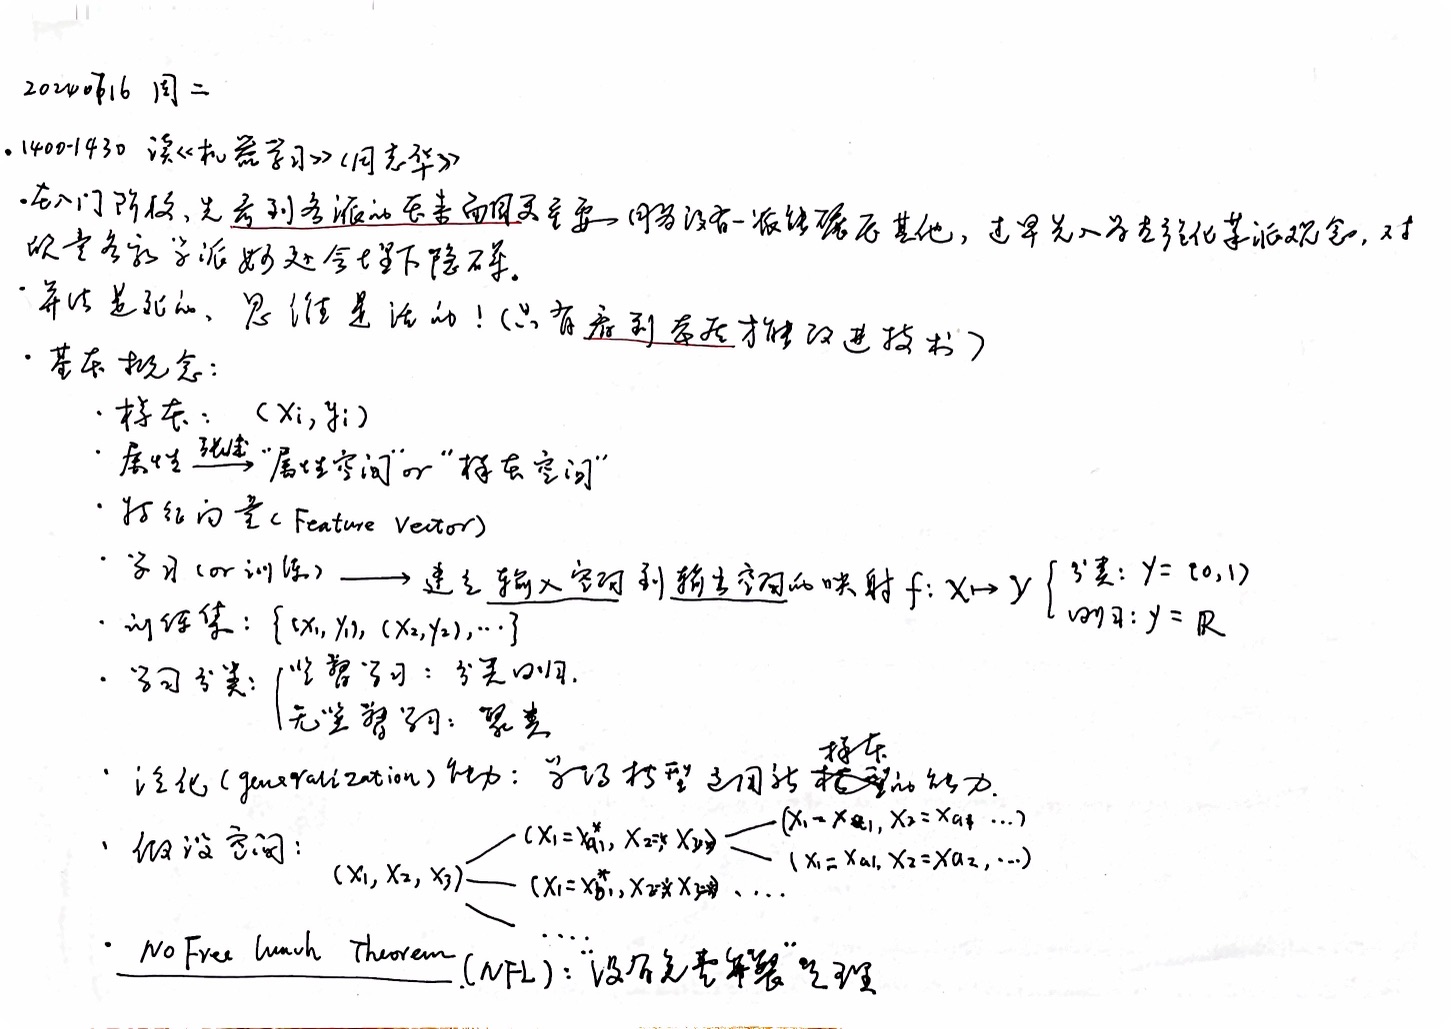 2024 0716 周二
·1400-1430 读《机器学习》《周志华》
·在入门阶段、先看到各派的本来面目更重要 因为没有一派能碾压其他，过早先入为主强化某派观念，对
欣赏各方学派妙处会埋下隐碍。
·算法是死的、思维是活的！（只有看到本质才能改进技术）
·基本概念：
·样本： (xi, yi)
·属性 张成→ "属性空间" or "样本空间"
·特征向量(Feature Vector)
·学习(or 训练) ⟶ 建立输入空间到输出空间的映射 f: X↦Y { 分类: Y = {0,1}
回归: Y = R
·训练集：{(x1, y1), (x2, y2), ⋯}
·学习分类： { 监督学习：分类 回归.
无监督学习：聚类
·泛化(generalization)能力：学得模型适用新样本的能力.
·假设空间： (x1, x2, x3)
(x1 = xa1, x2=*, x3=*) (x1 = xa1, x2 = xa1 ⋯)
(x1 = xa1, x2 = xa2, ⋯)
(x1 = xb1, x2=*, x3=*) ⋯
⋯
·No Free Lunch Theorem (NFL)："没有免费午餐"定理